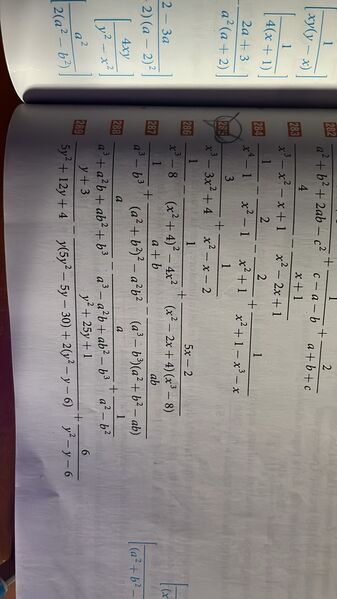 [1/(xy(y − x))]
[1/(4(x + 1))]
2a + 3/(a²(a + 2))]
2 − 3a/2)(a − 2)²
[4xy/(y² − x²)]
[a²/(2(a² − b²))]
282 /(a² + b² + 2ab − c²) + 1/(c − a − b) + 2/(a + b + c)
283 4/(x³ − x² − x + 1) − (x + 1)/(x² − 2x + 1)
284 1/(x⁴ − 1) − 2/(x² − 1) − 2/(x² + 1) + 1/(x² + 1 − x³ − x)
285 3/(x³ − 3x² + 4) + 1/(x² − x − 2)
286 1/(x³ − 8) − 1/((x² + 4)² − 4x²) + (5x − 2)/((x² − 2x + 4)(x³ − 8))
287 1/(a³ − b³) + (a + b)/((a² + b²)² − a²b²) − ab/((a³ − b³)(a² + b² − ab))
288 a/(a³ + a²b + ab² + b³) − a/(a³ − a²b + ab² − b³) + 1/(a² − b²)
289 (y + 3)/(5y² + 12y + 4) − (y² + 25y + 1)/(y(5y² − 5y − 30) + 2(y² − y − 6)) + 6/(y² − y − 6)
[(a² + b² −